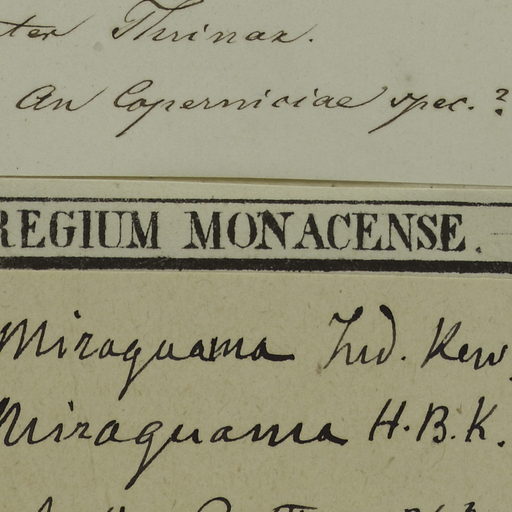 ter Thrinax.
An Coperniciae spec. ?
REGIUM MONACENSE.
Miraguama Ind. Kew
Miraguama H.B.K.